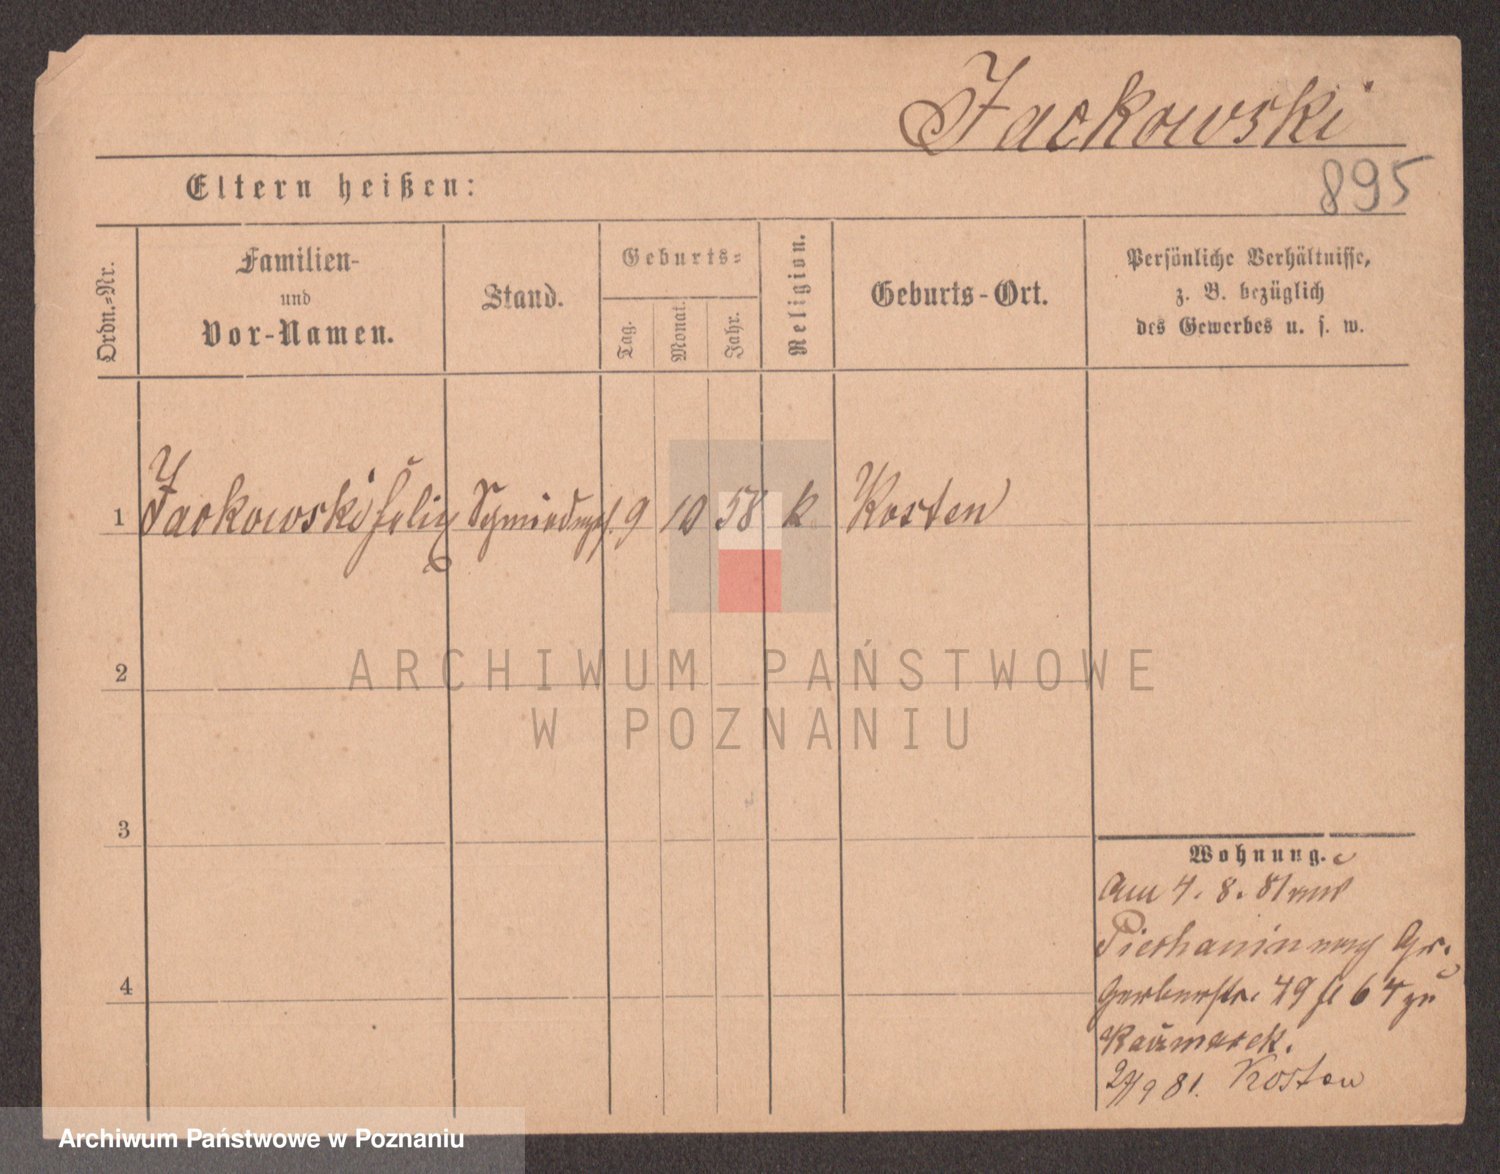 Jackowski
895
Eltern heißen:
Ordn.-Nr.
Familien-
und
Vor-Namen.
Stand.
Geburts-
Tag.
Monat.
Jahr.
Religion.
Geburts-Ort.
Persönliche Verhältnisse,
z. B. bezüglich
des Gewerbes u. s. w.
1 Jackowski Felix Schmiedges. 9 10 58 k Kosten
2
3
4
Wohnung.
Am 4. 8. 81 aus
nach Gr.
Gerberstr. 49 64 zu
Kaczmarek.
9 81. Kosten
ARCHIWUM PAŃSTWOWE
W POZNANIU
Archiwum Państwowe w Poznaniu